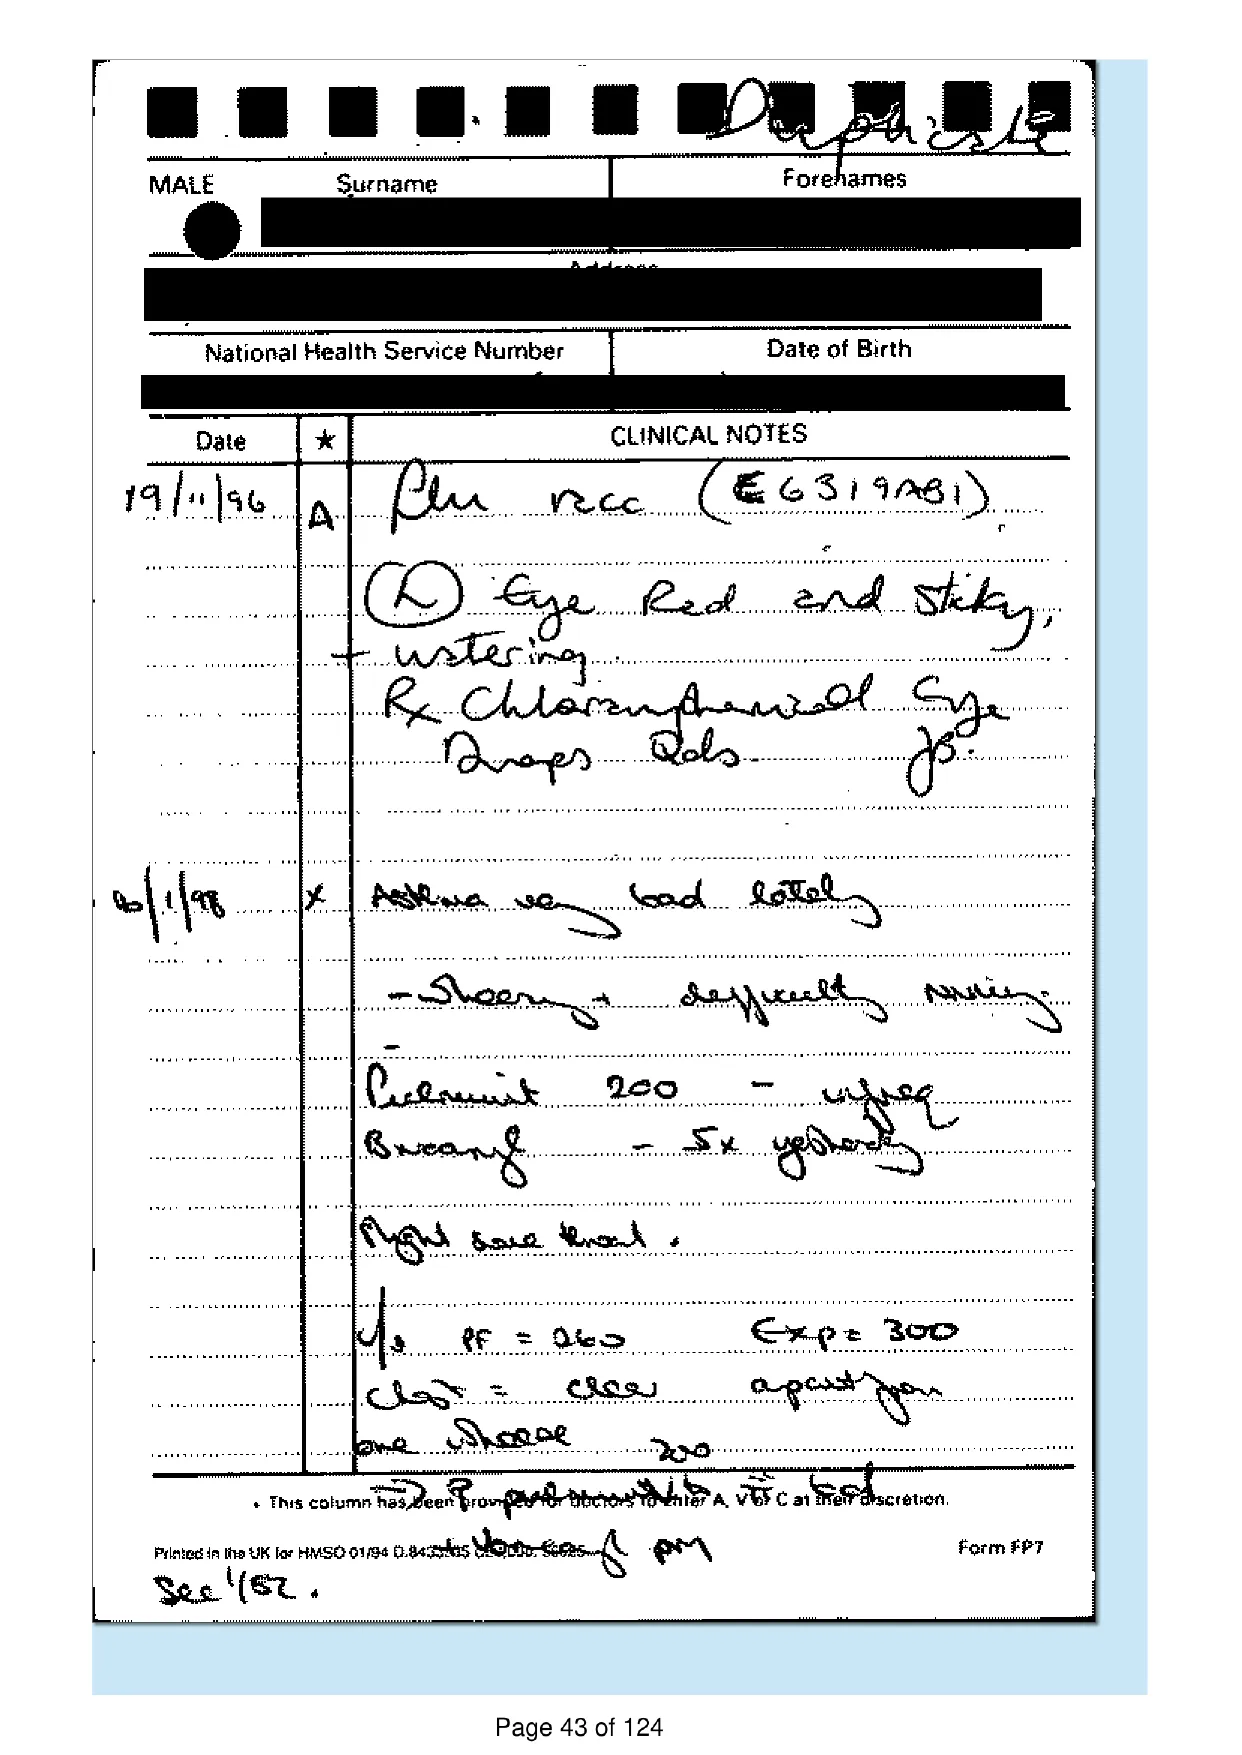 Duplicate
MALE Surname Forenames
Address
National Health Service Number Date of Birth
Date ★ CLINICAL NOTES
19/11/96 A Flu vacc (E6319AB1)
(L) Eye Red and Sticky,
+ watering
Rx Chloramphenicoll Eye
Drops Qds.
/1/98 x Asthma very bad lately
- wheezy + difficulty running.
-
Pulmicort 200 - infreq
Bricanyl - 5x yesterday
Slight sore throat.
PF = 260 Exp = 300
Chest = clear apart from
one wheeze 200
→ pulmicort ii bd
* This column has been provided for Doctors to enter A, V or C at their discretion.
+ pm
Printed in the UK for HMSO 01/94 Form FP7
See 1/52.
Page 43 of 124